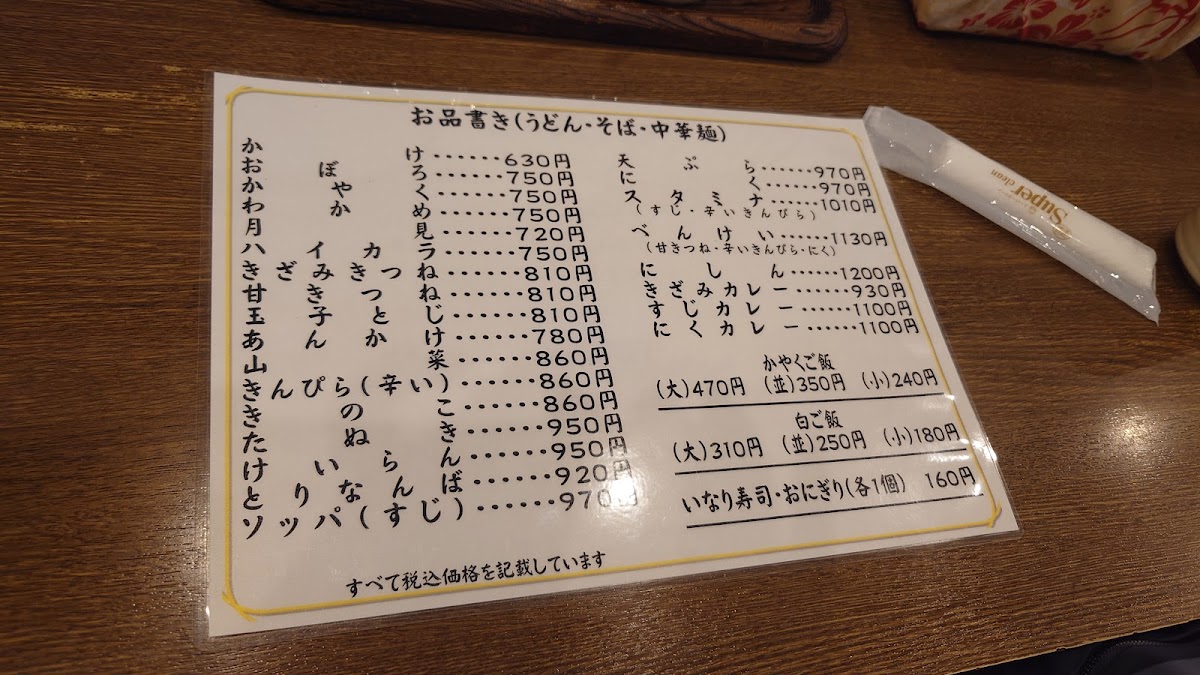 お品書き(うどん・そば・中華麺)
かけ・・・・・・630円
おぼろ・・・・・・750円
かやく・・・・・・750円
わかめ・・・・・・750円
月見・・・・・・720円
ハイカラ・・・・・・750円
きざみきつね・・・・・・810円
甘きつね・・・・・・810円
玉子とじ・・・・・・810円
あんかけ・・・・・・780円
山菜・・・・・・860円
きんぴら(辛い)・・・・・・860円
きのこ・・・・・・860円
たぬき・・・・・・950円
けいらん・・・・・・950円
とりなんば・・・・・・920円
ソッパ(すじ)・・・・・・970円
すべて税込価格を記載しています
天ぷら・・・・・・970円
にく・・・・・・970円
スタミナ・・・・・・1010円
(すじ・辛いきんぴら)
べんけい・・・・・・1130円
(甘きつね・辛いきんぴら・にく)
にしん・・・・・・1200円
きざみカレー・・・・・・930円
すじカレー・・・・・・1100円
にくカレー・・・・・・1100円
かやくご飯
(大)470円 (並)350円 (小)240円
白ご飯
(大)310円 (並)250円 (小)180円
いなり寿司・おにぎり(各1個) 160円
Super
clean